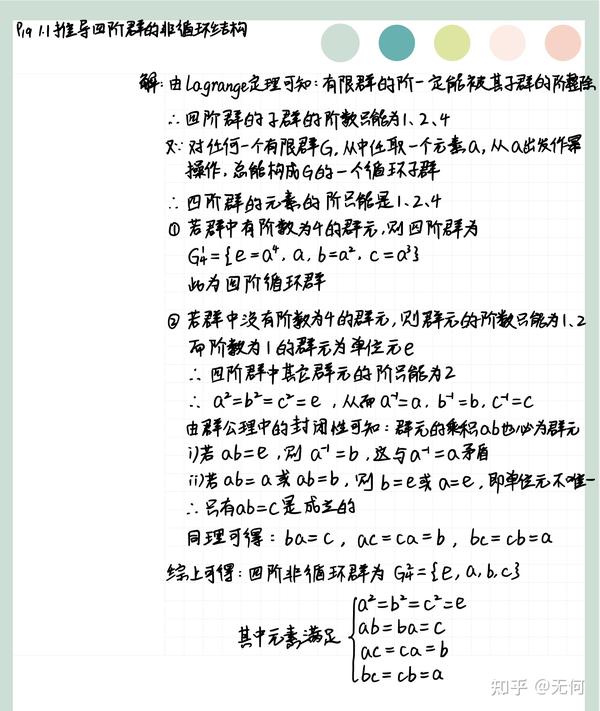 P19 1.1 推导四阶群的非循环结构
解:由Lagrange定理可知:有限群的阶一定能被其子群的阶整除
∴四阶群的子群的阶数只能为1、2、4
又∵对任何一个有限群G,从中任取一个元素a,从a出发作幂
操作,总能构成G的一个循环子群
∴四阶群的元素的阶只能是1、2、4
① 若群中有阶数为4的群元,则四阶群为
G₄¹={e=a⁴, a, b=a², c=a³}
此为四阶循环群
② 若群中没有阶数为4的群元,则群元的阶数只能为1、2
而阶数为1的群元为单位元e
∴四阶群中其它群元的阶只能为2
∴ a²=b²=c²=e ,从而a⁻¹=a, b⁻¹=b, c⁻¹=c
由群公理中的封闭性可知:群元的乘积ab也必为群元
i)若 ab=e ,则 a⁻¹=b ,这与a⁻¹=a矛盾
ii)若ab=a或ab=b,则 b=e或a=e,即单位元不唯一
∴只有ab=c是成立的
同理可得:ba=c, ac=ca=b, bc=cb=a
综上可得:四阶非循环群为 G₄²={e,a,b,c}
其中元素满足
a²=b²=c²=e
ab=ba=c
ac=ca=b
bc=cb=a
知乎 @无何